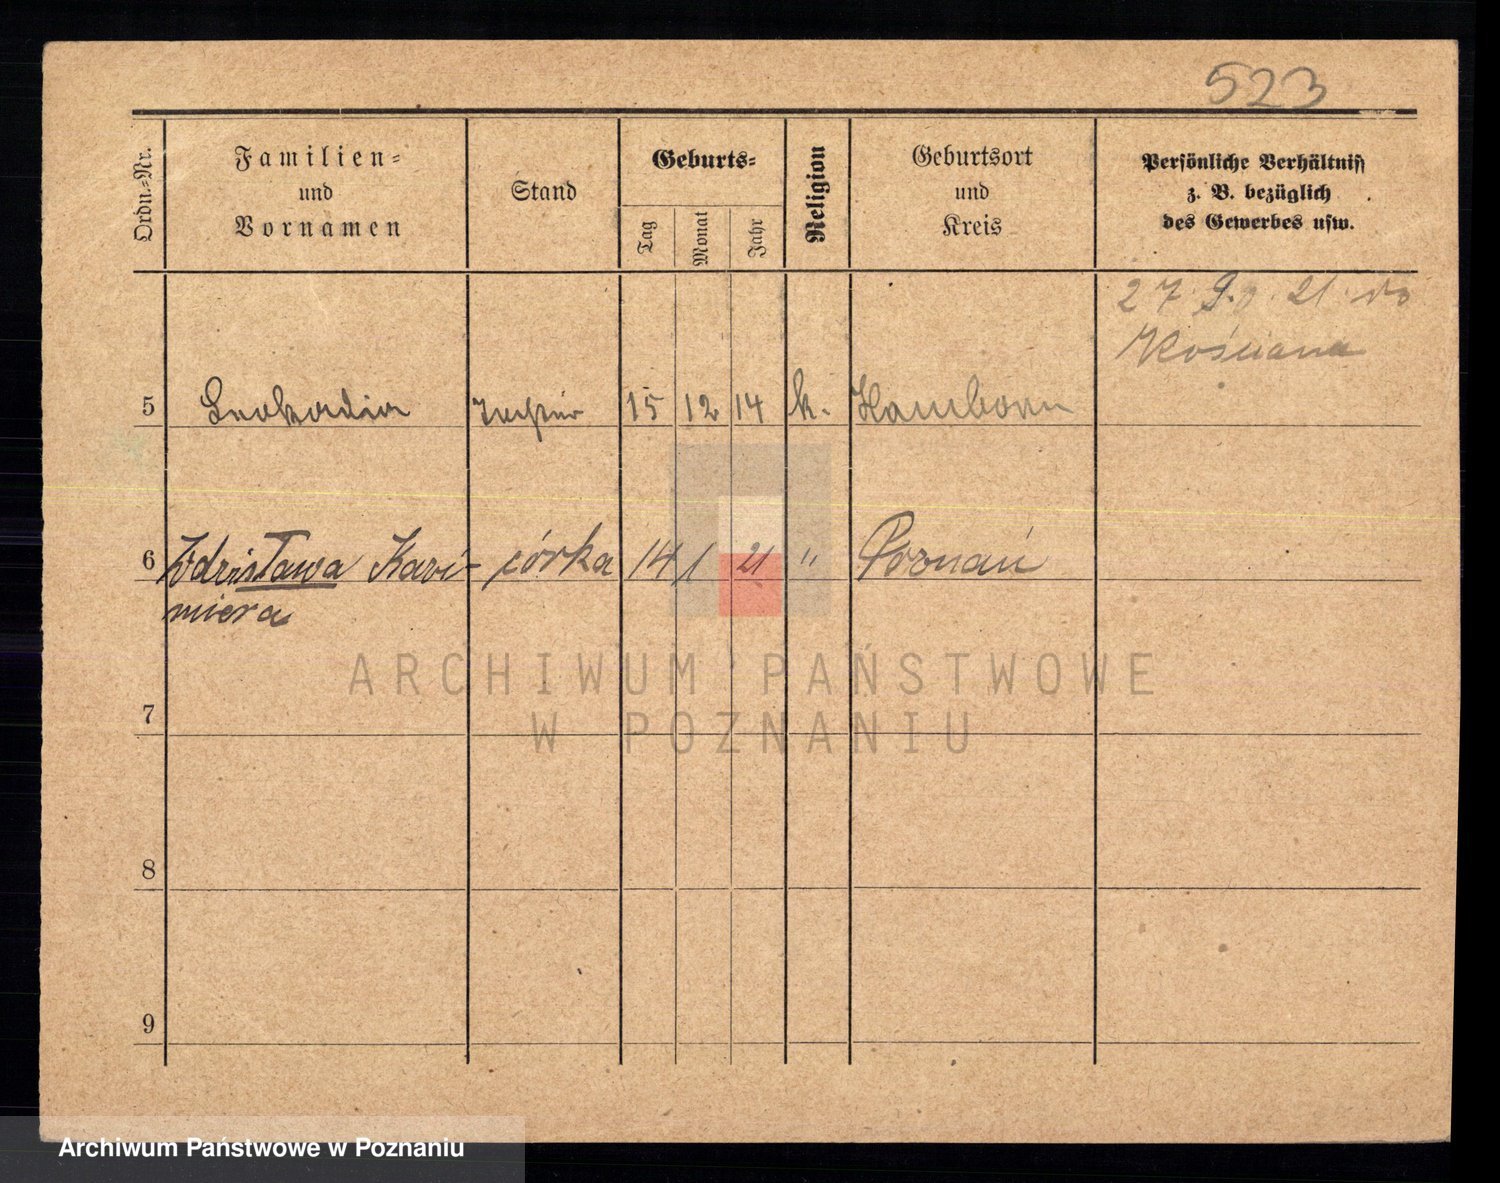 523
Ordn.-Nr.
Familien-
und
Vornamen
Stand
Geburts-
Tag
Monat
Jahr
Religion
Geburtsort
und
Kreis
Persönliche Verhältniss
z. B. bezüglich
des Gewerbes usw.
27. 9. 21 do
Kościana
5 Leokadia 15 12 14 k. Hamborn
6 Zdzisława Kazi- córka 14 1 21 " Poznań
miera
7
8
9
ARCHIWUM PAŃSTWOWE
W POZNANIU
Archiwum Państwowe w Poznaniu